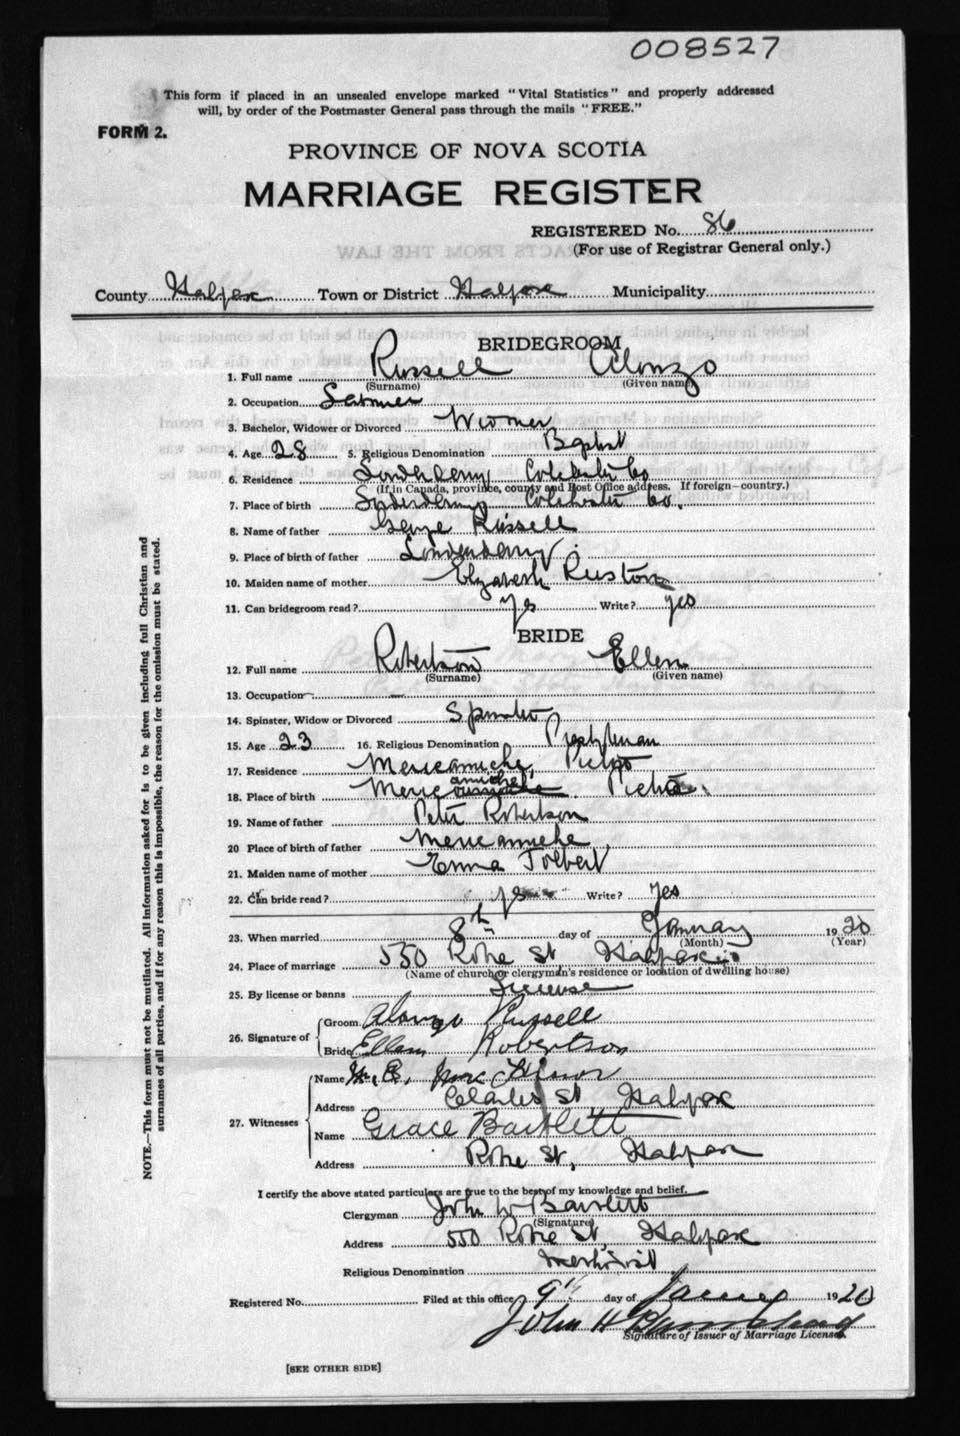 008527
This form if placed in an unsealed envelope marked "Vital Statistics" and properly addressed
will, by order of the Postmaster General pass through the mails "FREE."
FORM 2.
PROVINCE OF NOVA SCOTIA
MARRIAGE REGISTER
REGISTERED No. 86
(For use of Registrar General only.)
County Halifax Town or District Halifax Municipality
BRIDEGROOM
1. Full name Russell Alonzo
(Surname) (Given name)
2. Occupation Farmer
3. Bachelor, Widower or Divorced Widower
4. Age 28 5. Religious Denomination Baptist
6. Residence Londonderry Colchester Co
(If in Canada, province, county and Post Office address. If foreign—country.)
7. Place of birth Londonderry Colchester Co.
8. Name of father George Russell
9. Place of birth of father Londonderry
10. Maiden name of mother Elizabeth Ruston
11. Can bridegroom read? Yes Write? yes
BRIDE
12. Full name Robertson Ellen
(Surname) (Given name)
13. Occupation —
14. Spinster, Widow or Divorced Spinster
15. Age 23 16. Religious Denomination Presbyterian
17. Residence Mericamiche, Pictou
18. Place of birth Pictou
19. Name of father Peter Robertson
20 Place of birth of father Mericamiche
21. Maiden name of mother Emma Tolbert
22. Can bride read? yes Write? Yes
23. When married 8th day of January 1920
(Month) (Year)
24. Place of marriage 550 Robie St, Halifax
(Name of church or clergyman's residence or location of dwelling house)
25. By license or banns License
26. Signature of Groom Alonzo Russell
Bride Ellen Robertson
27. Witnesses Name
Address Charles St, Halifax
Name Grace Bartlett
Address Robie St, Halifax
I certify the above stated particulars are true to the best of my knowledge and belief.
Clergyman John W Bartlett
(Signature)
Address 550 Robie St, Halifax
Religious Denomination Methodist
Registered No. Filed at this office 9th day of January 1920
John H
Signature of Issuer of Marriage Licenses.
[SEE OTHER SIDE]
NOTE.—This form must not be mutilated. All information asked for is to be given including full Christian and
surnames of all parties, and if for any reason this is impossible, the reason for the omission must be stated.